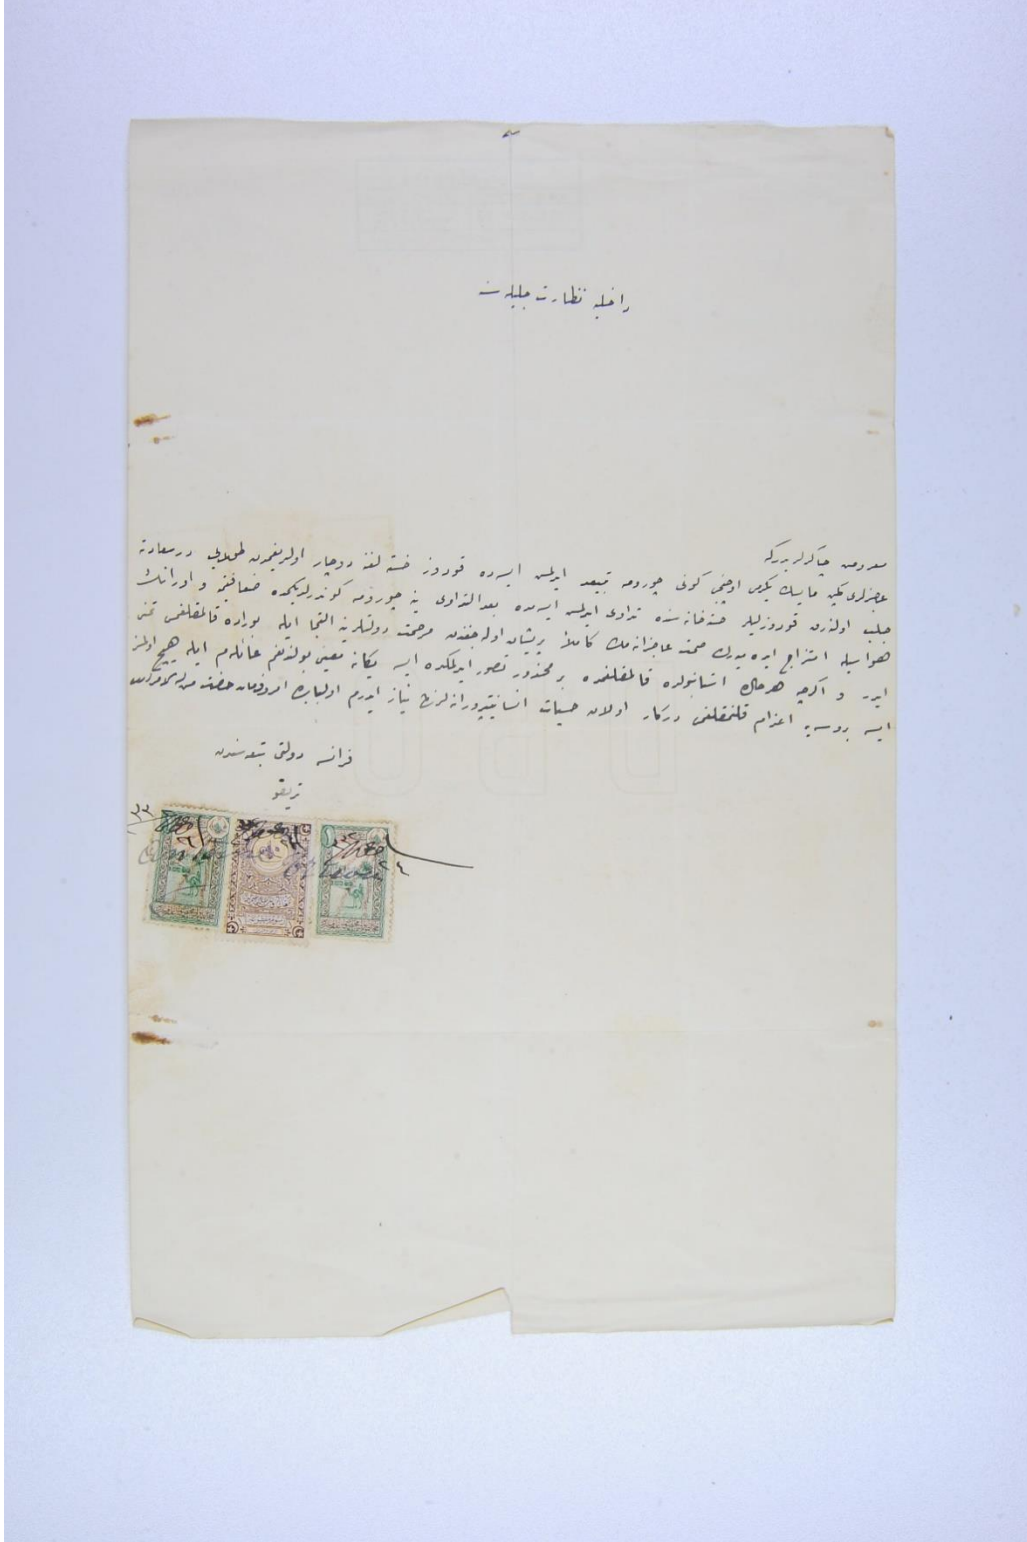 داخلیه نظارت جلیله سنه
معروض چاکرلریدركه
عاجزلری كچن مایسك یكرمی اوچنجی كونی چورومه تبعید ایدلمش ایسه‌ده قودوز خسته لغنه دوچار اولدیغمدن طولایی درسعادته
جلب اولنه‌رق قودوزیلر خسته‌خانه‌سنده تداوی ایدلمش ایسه‌مده بعد التداوی ینه چورومه كوندرلدیكمده ضعافتم و اورانك
هواسیله امتزاج ایده‌میه‌رك صحت عاجزانه‌مك كاملاً پریشان اوله‌جغندن مرحمت دولتلرینه التجا ایله بوراده قالمقلغمی تمنی
ایدر و اكرچه هر حالده استانبولده قالمقلغمده بر محذور تصور ایدلمكده ایسه یكانه معینی بولندیغم عائله‌م ایله هیچ اولمز
ایسه بروسه‌یه اعزام قلنمقلغمی دركار اولان حسیات انسانیتپرورانه‌لرندن نیاز ایدرم اولبابده امر و فرمان حضرت من له الامركدر
فرانسه دولتی تبعه‌سندن